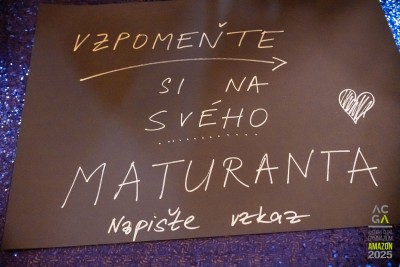 VZPOMEŇTE
SI NA
SVÉHO
MATURANTA
Napište vzkaz
ACGA
AMAZON
2025